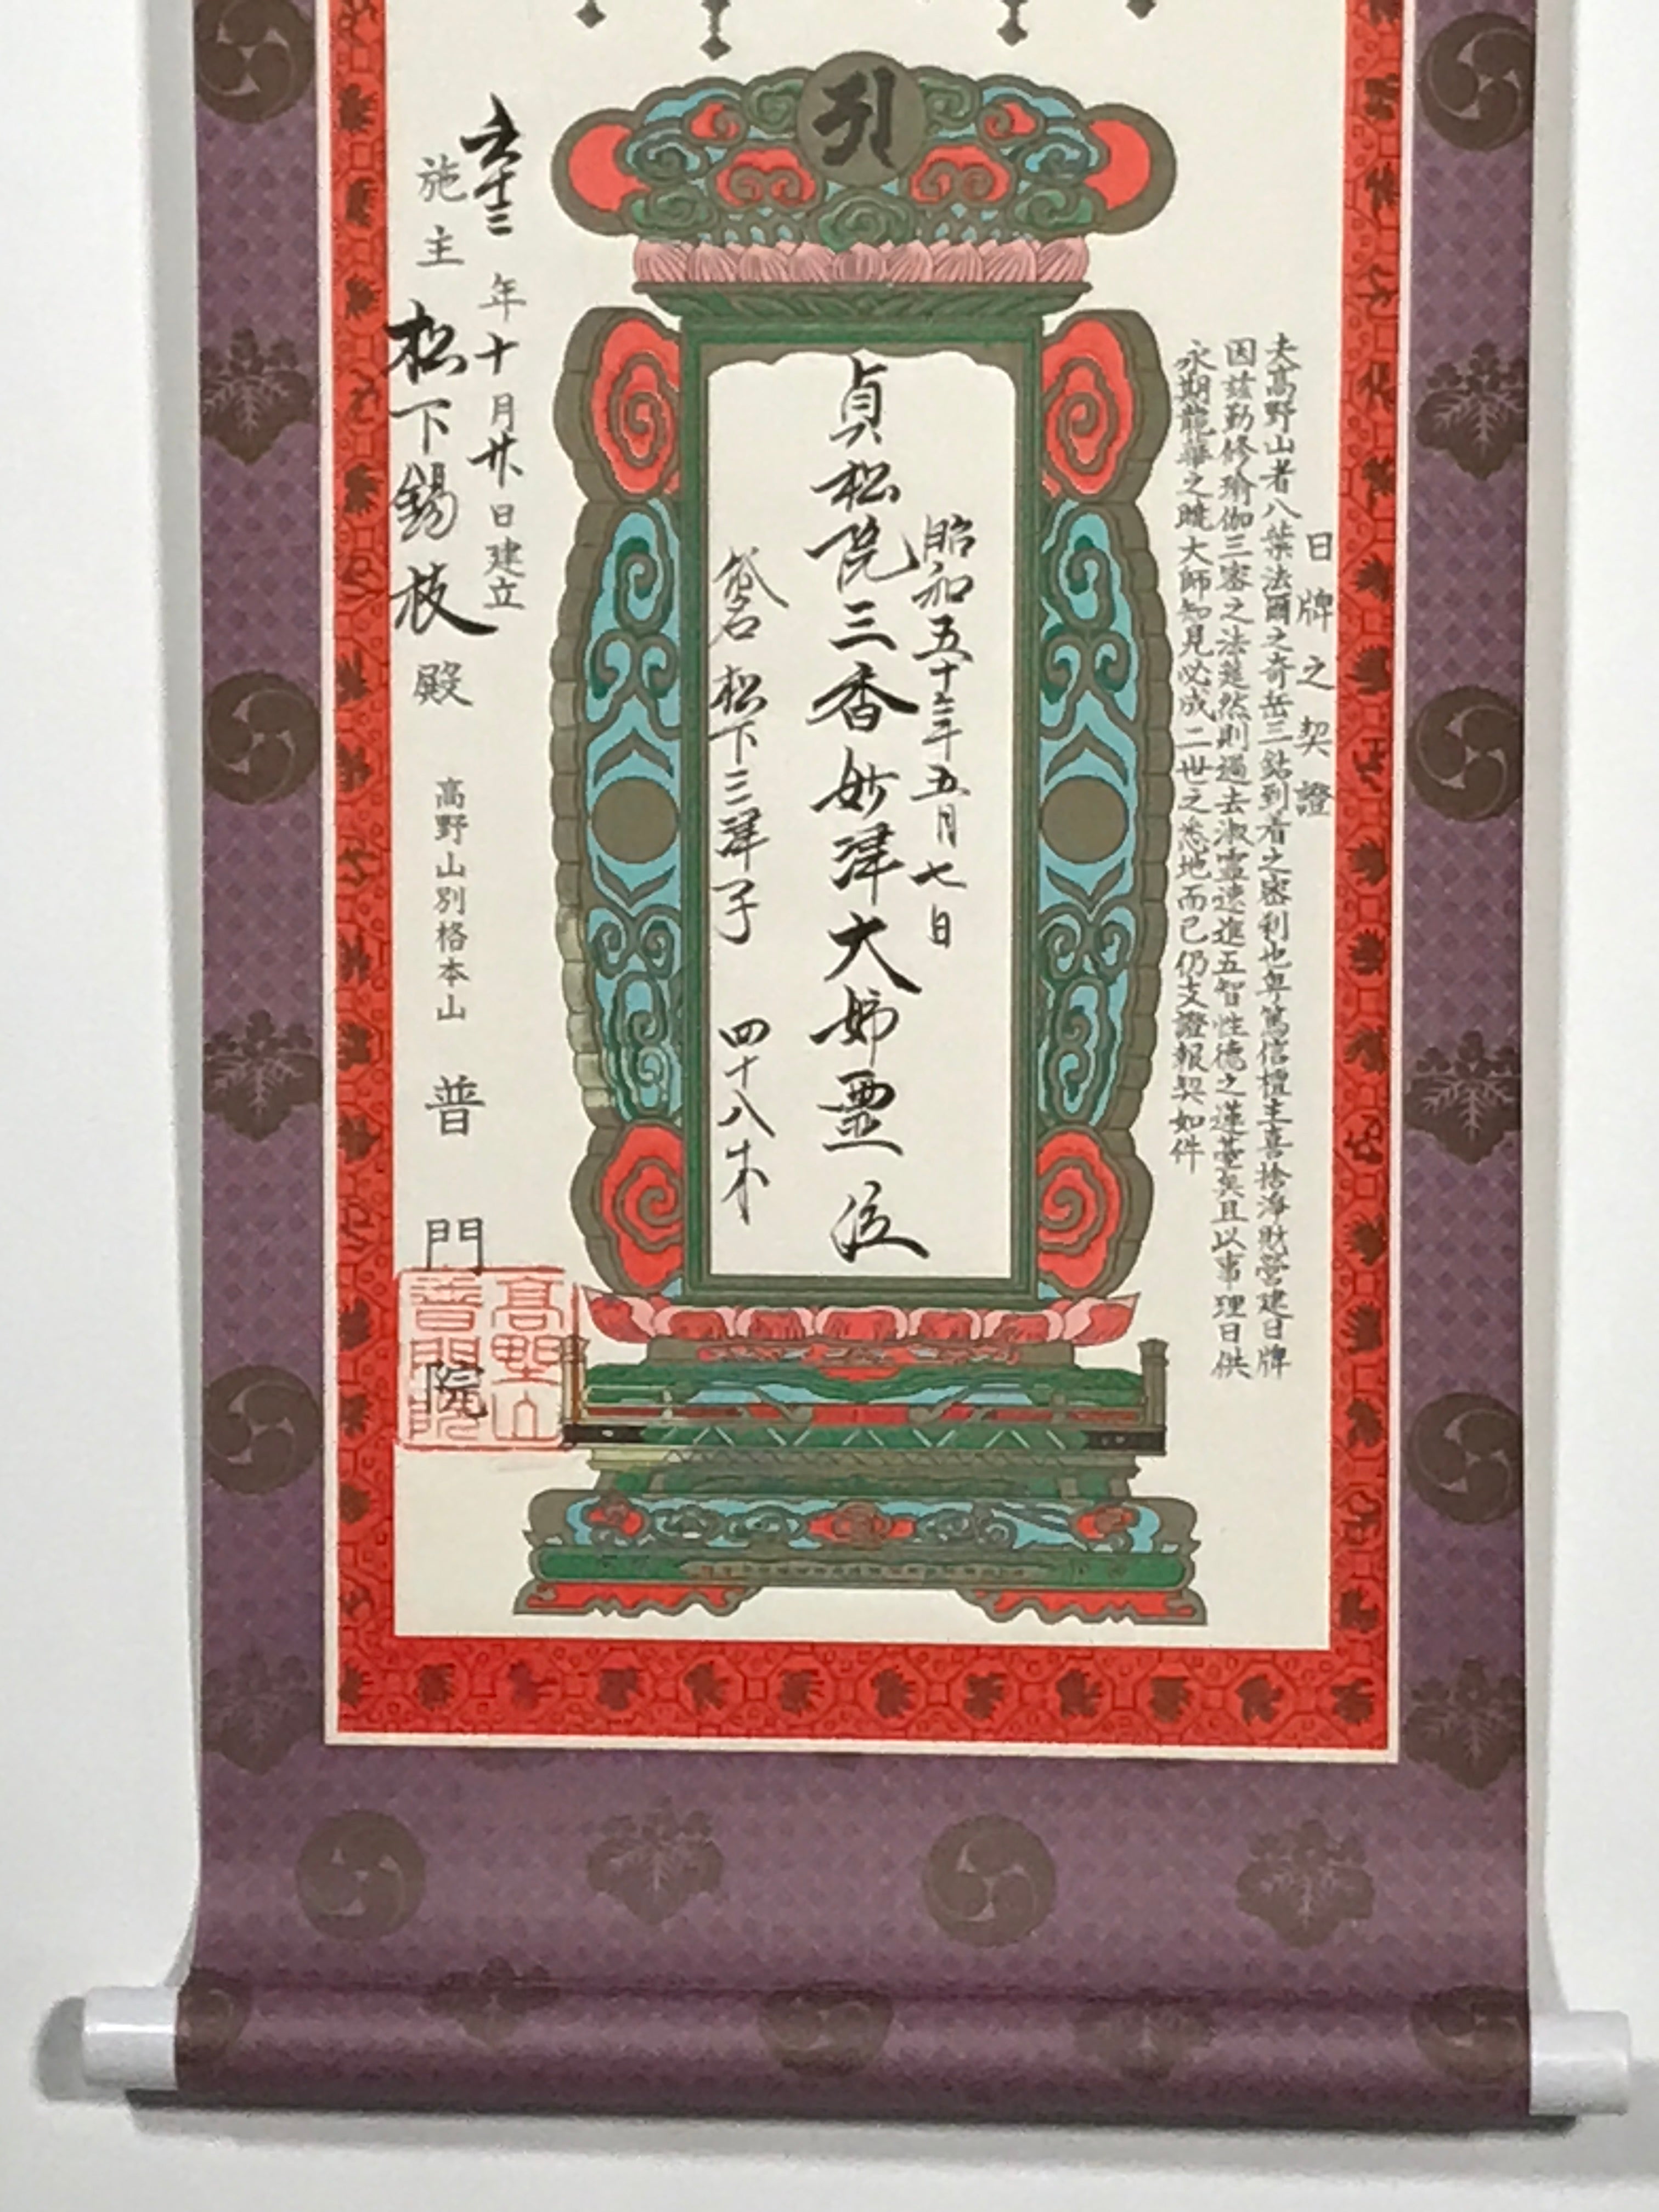 日牌之契證
夫高野山者八葉法爾之奇岳三鈷到着之密利也卑篤信檀主喜捨浄財営建日牌
因茲勤修瑜伽三密之法莚然則過去淑霊速進五智性徳之蓮臺矣且以事理日供
永期龍華之暁大師知見必成二世之悉地而已仍支證報契如件
引
昭和五十三年五月七日
貞松院三香妙津大姉霊位
俗名 松下三津子 四十八才
六十三年十月廿日建立
施主 松下錫枝殿 高野山別格本山 普門院
高野山
普門院